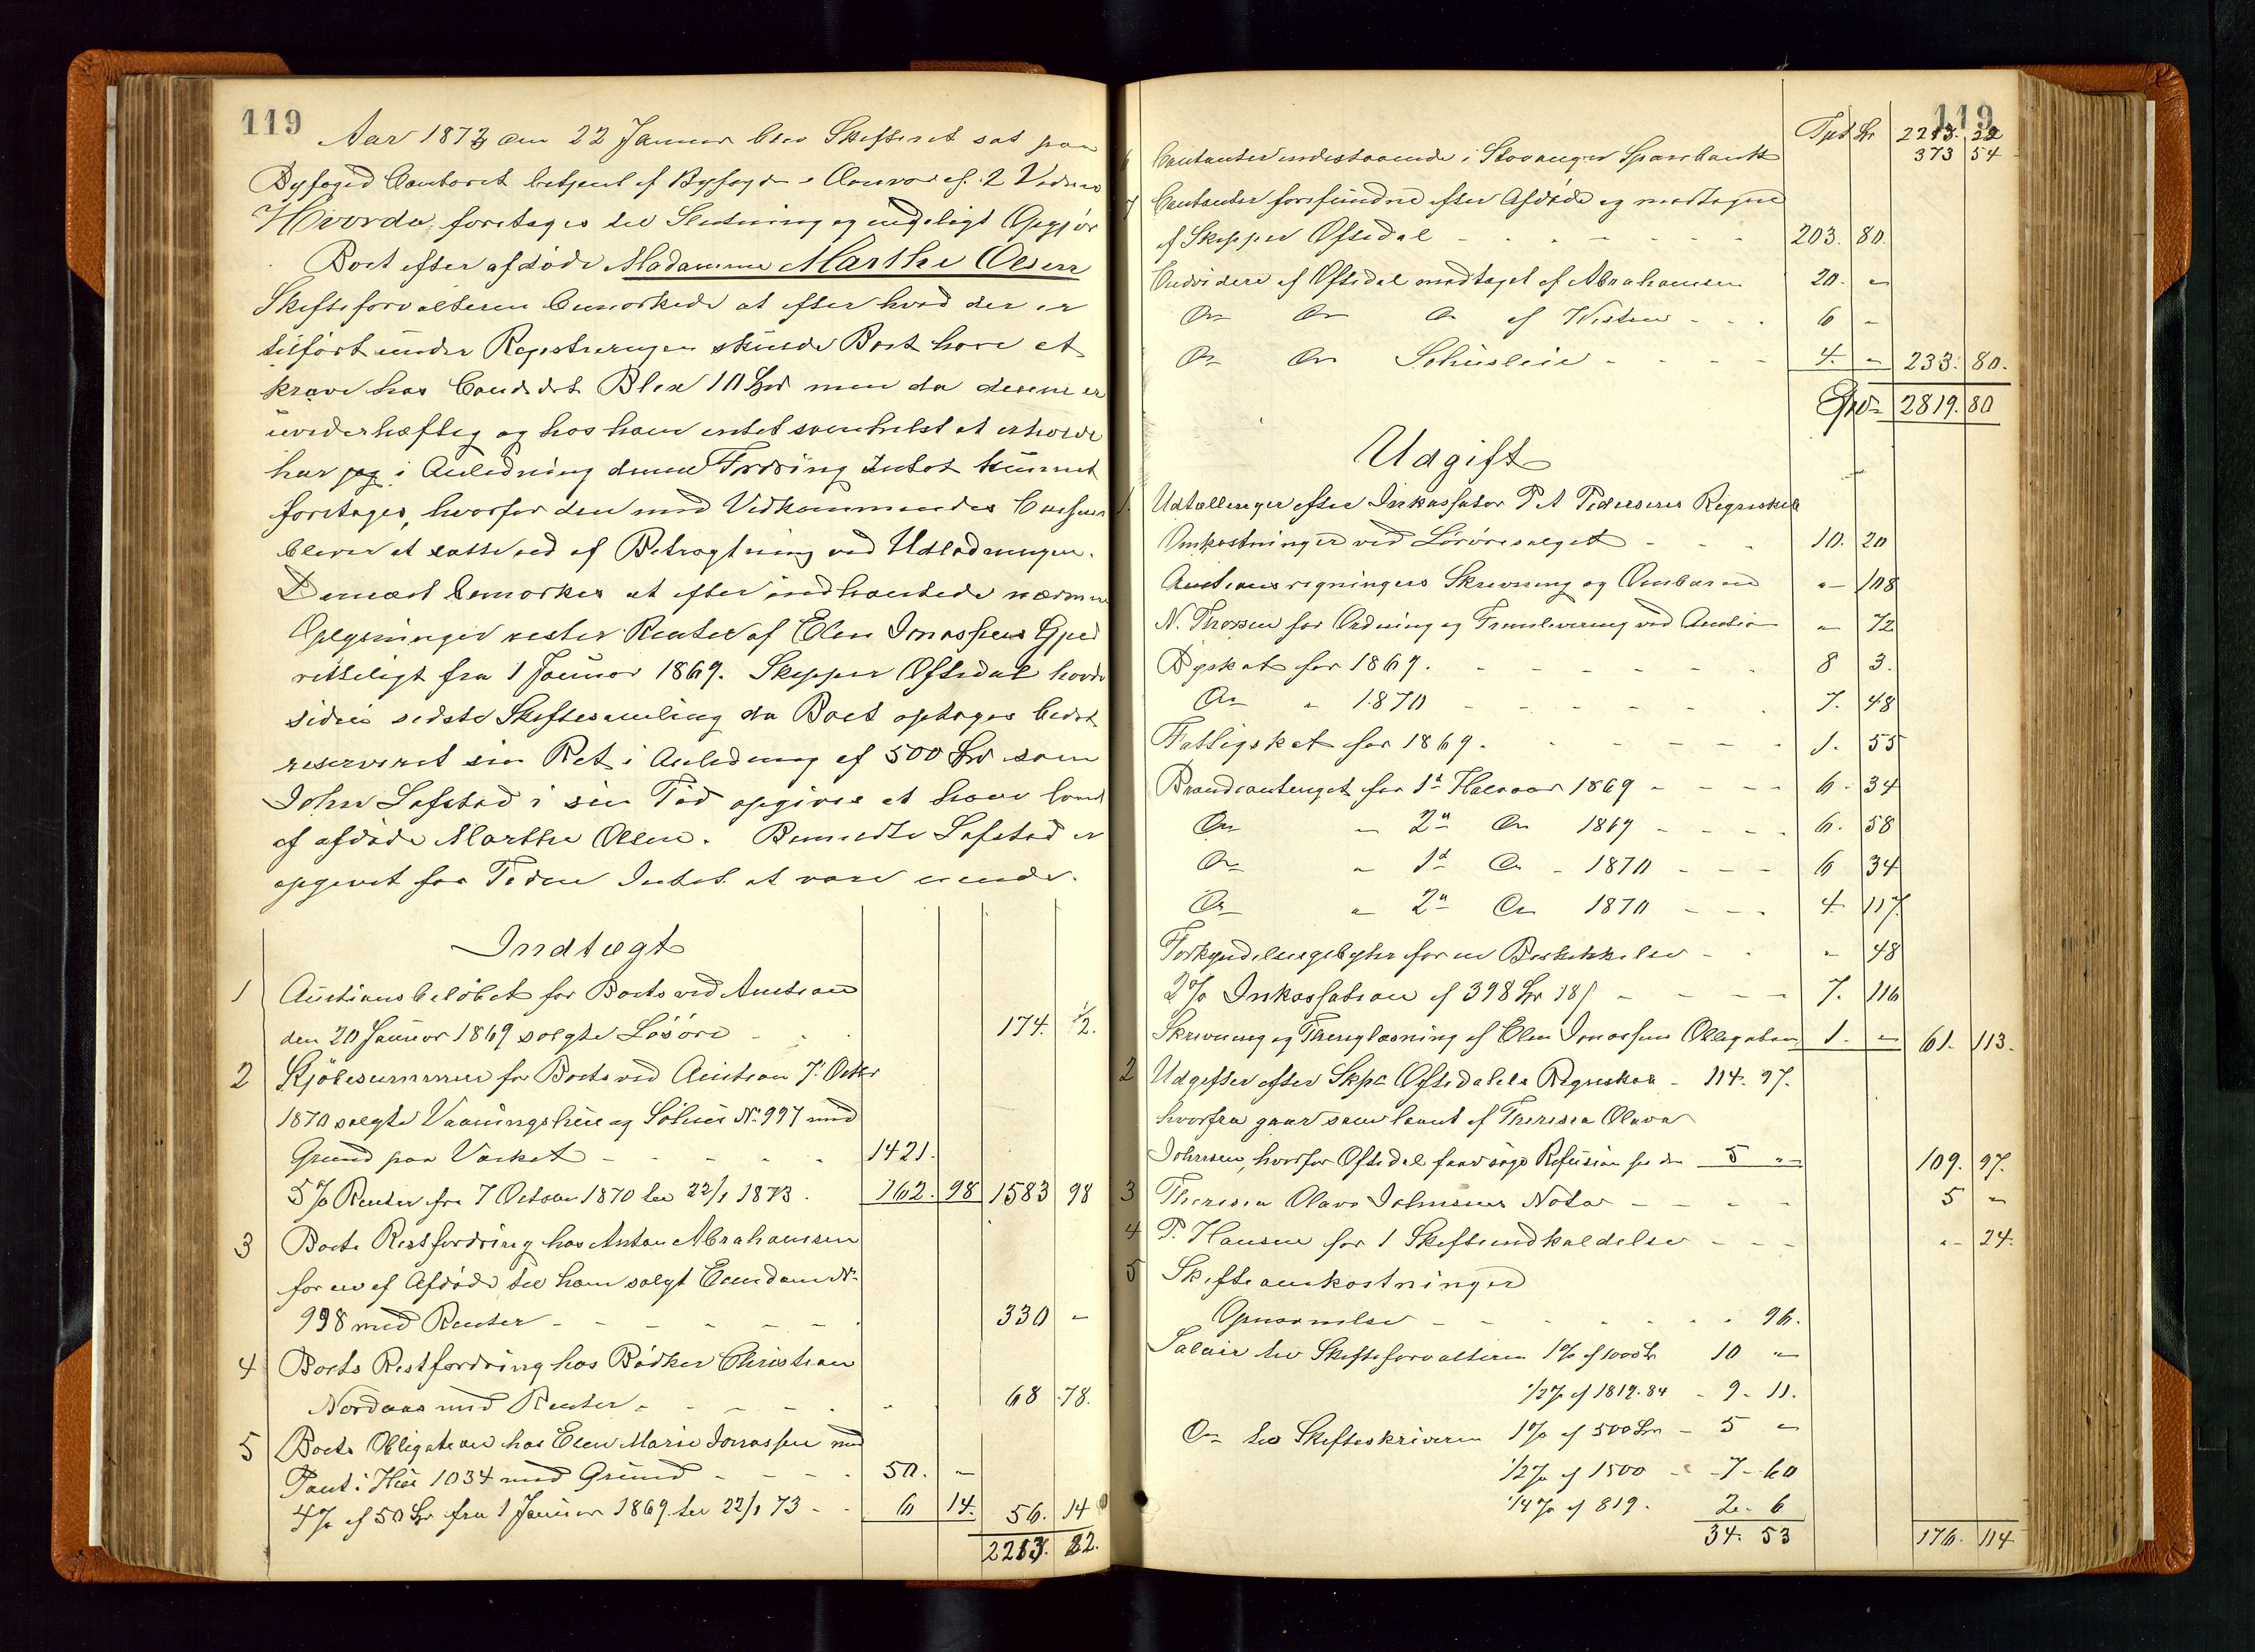 119
Aar 1873 den 22 Januar blev Skifteret sat paa
Byfoged Contoret betjent af Byfogden i Nærvær af 2 Vidner
Hvorda foretages til Slutning og endeligt Opgjör
Boet efter afdöde Madamme Marthe Olsen
Skifteforvalteren bemærkede at efter hvad der er
tilfört under Registreringen skulde Boet have et
krav hos Candidat Blix 10 Spd men da denne er
uvederhæftig og hos ham intet somhelst at erholde
har jeg i Anledning denne Fordring Intet kunnet
foretages, hvorfor den med Vedkommendes Consens
bliver at sætte ud af Betragtning ved Udlodningen.
Dernæst bemærkes at efter indhentede nærmere
Oplysninger rester Renter af Elen Jonassens Gjæld
retteligt fra 1 Januar 1869. Skipper Oftedal havde
siden sidste Skiftesamling da Boet optoges bedst
reserveret sin Ret i Anledning af 500 Spd som
John Lofstad i sin Tid opgives at have laant
af afdöde Marthe Olsen. Lofstad er
opgivet for Tiden Intet at være eiende.
Indtægt
1 Auctionsbelöbet for Boets ved Auction
den 20 Januar 1869 solgte Lösöre - 174. ½.
2 Kjöbesummen for Boets ved Auction 7 Octbr
1870 solgte Vaaningshuus og Söhuus No 997 med
Grund paa Værket - - - - - 1421.
5 % Renter fra 7 October 1870 til 22/1 1873. 162. 98 1583 98
3 Boets Restfordring hos Anton Abrahamsen
for en af Afdöde til ham solgt Eiendom No
998 med Renter - - - - - - 330 -
4 Boets Restfordring hos Bödker Christian
Nordaas med Renter - - - - - 68 78.
5 Boets Obligation hos Elen Marie Jonassen med
Pant i Huus 1034 med Grund - - - 50. -
4 % af 50 Spd fra 1 Januar 1869 til 22/1 73 - 6 14. 56. 14
2213. 22.
119
Tpt Spd 2213. 22
6 Contanter indestaaende i Stavanger Sparebank 373 54
7 Contanter forefundne efter Afdöde og modtagne
af Skipper Oftedal - - - - - 203. 80.
Endvidere af Oftedal modtaget af Abrahamsen 20. "
Do Do Do af - - - 6 -
Do Do Söhusleie - - - - 4. " 233. 80.
Spd 2819. 80
Udgift
1. Udtællinger efter Inkassator P A Pedersens Regnskab
Omkostninger ved Lösöresalget - - - 10. 20
Auctionsregningers Skrivning og Ombæren " 108
N. Thorsen for Ordning og Fremlevering ved Auction " 72
Byskat for 1869. - - - - - 8 3.
Do " 1870 - - - - - 7. 48
Fattigskat for 1869. - - - - - 1. 55
Brandcontingent for 1st Halvaar 1869 - - - - 6 - 34
Do " 2n Do 1869 - - - - 6. 58
Do " 1st Do - 1870 - - - 6 34
Do " 2n Do 1870 - - - 4. 117.
Forkyndelsesgebyhr for en Beskikkelse - - " 48
2 % Inkassation af 398 Spd 18 ß - - - - 7. 116
Skrivning og Thinglæsning af Elen Jonassens Obligation 1. " 61. 113.
2 Udgifter efter Skpr Oftedahls Regnskab - 114. 97.
hvorfra gaar som laant af Theresia Olava
Johnsen, hvorfor Oftedal faar söge Refusion hos den 5 " 109. 97.
3 Theresia Olava Johnsens Nota - - - - 5 "
4 P. Hansen for 1 Skifteindkaldelse - - - " 24.
5 Skifteomkostninger
- - - - - - 96.
Salair til Skifteforvalteren 1 % af 1000 Spd 10 "
1/2 % af 1819. 84 - 9 - 11.
Do til Skifteskriveren 1 % af 500 Spd - 5 "
1/2 % af 1500 - 7 - 60
1/4 % af 819. 2. 6
34. 53 176. 114